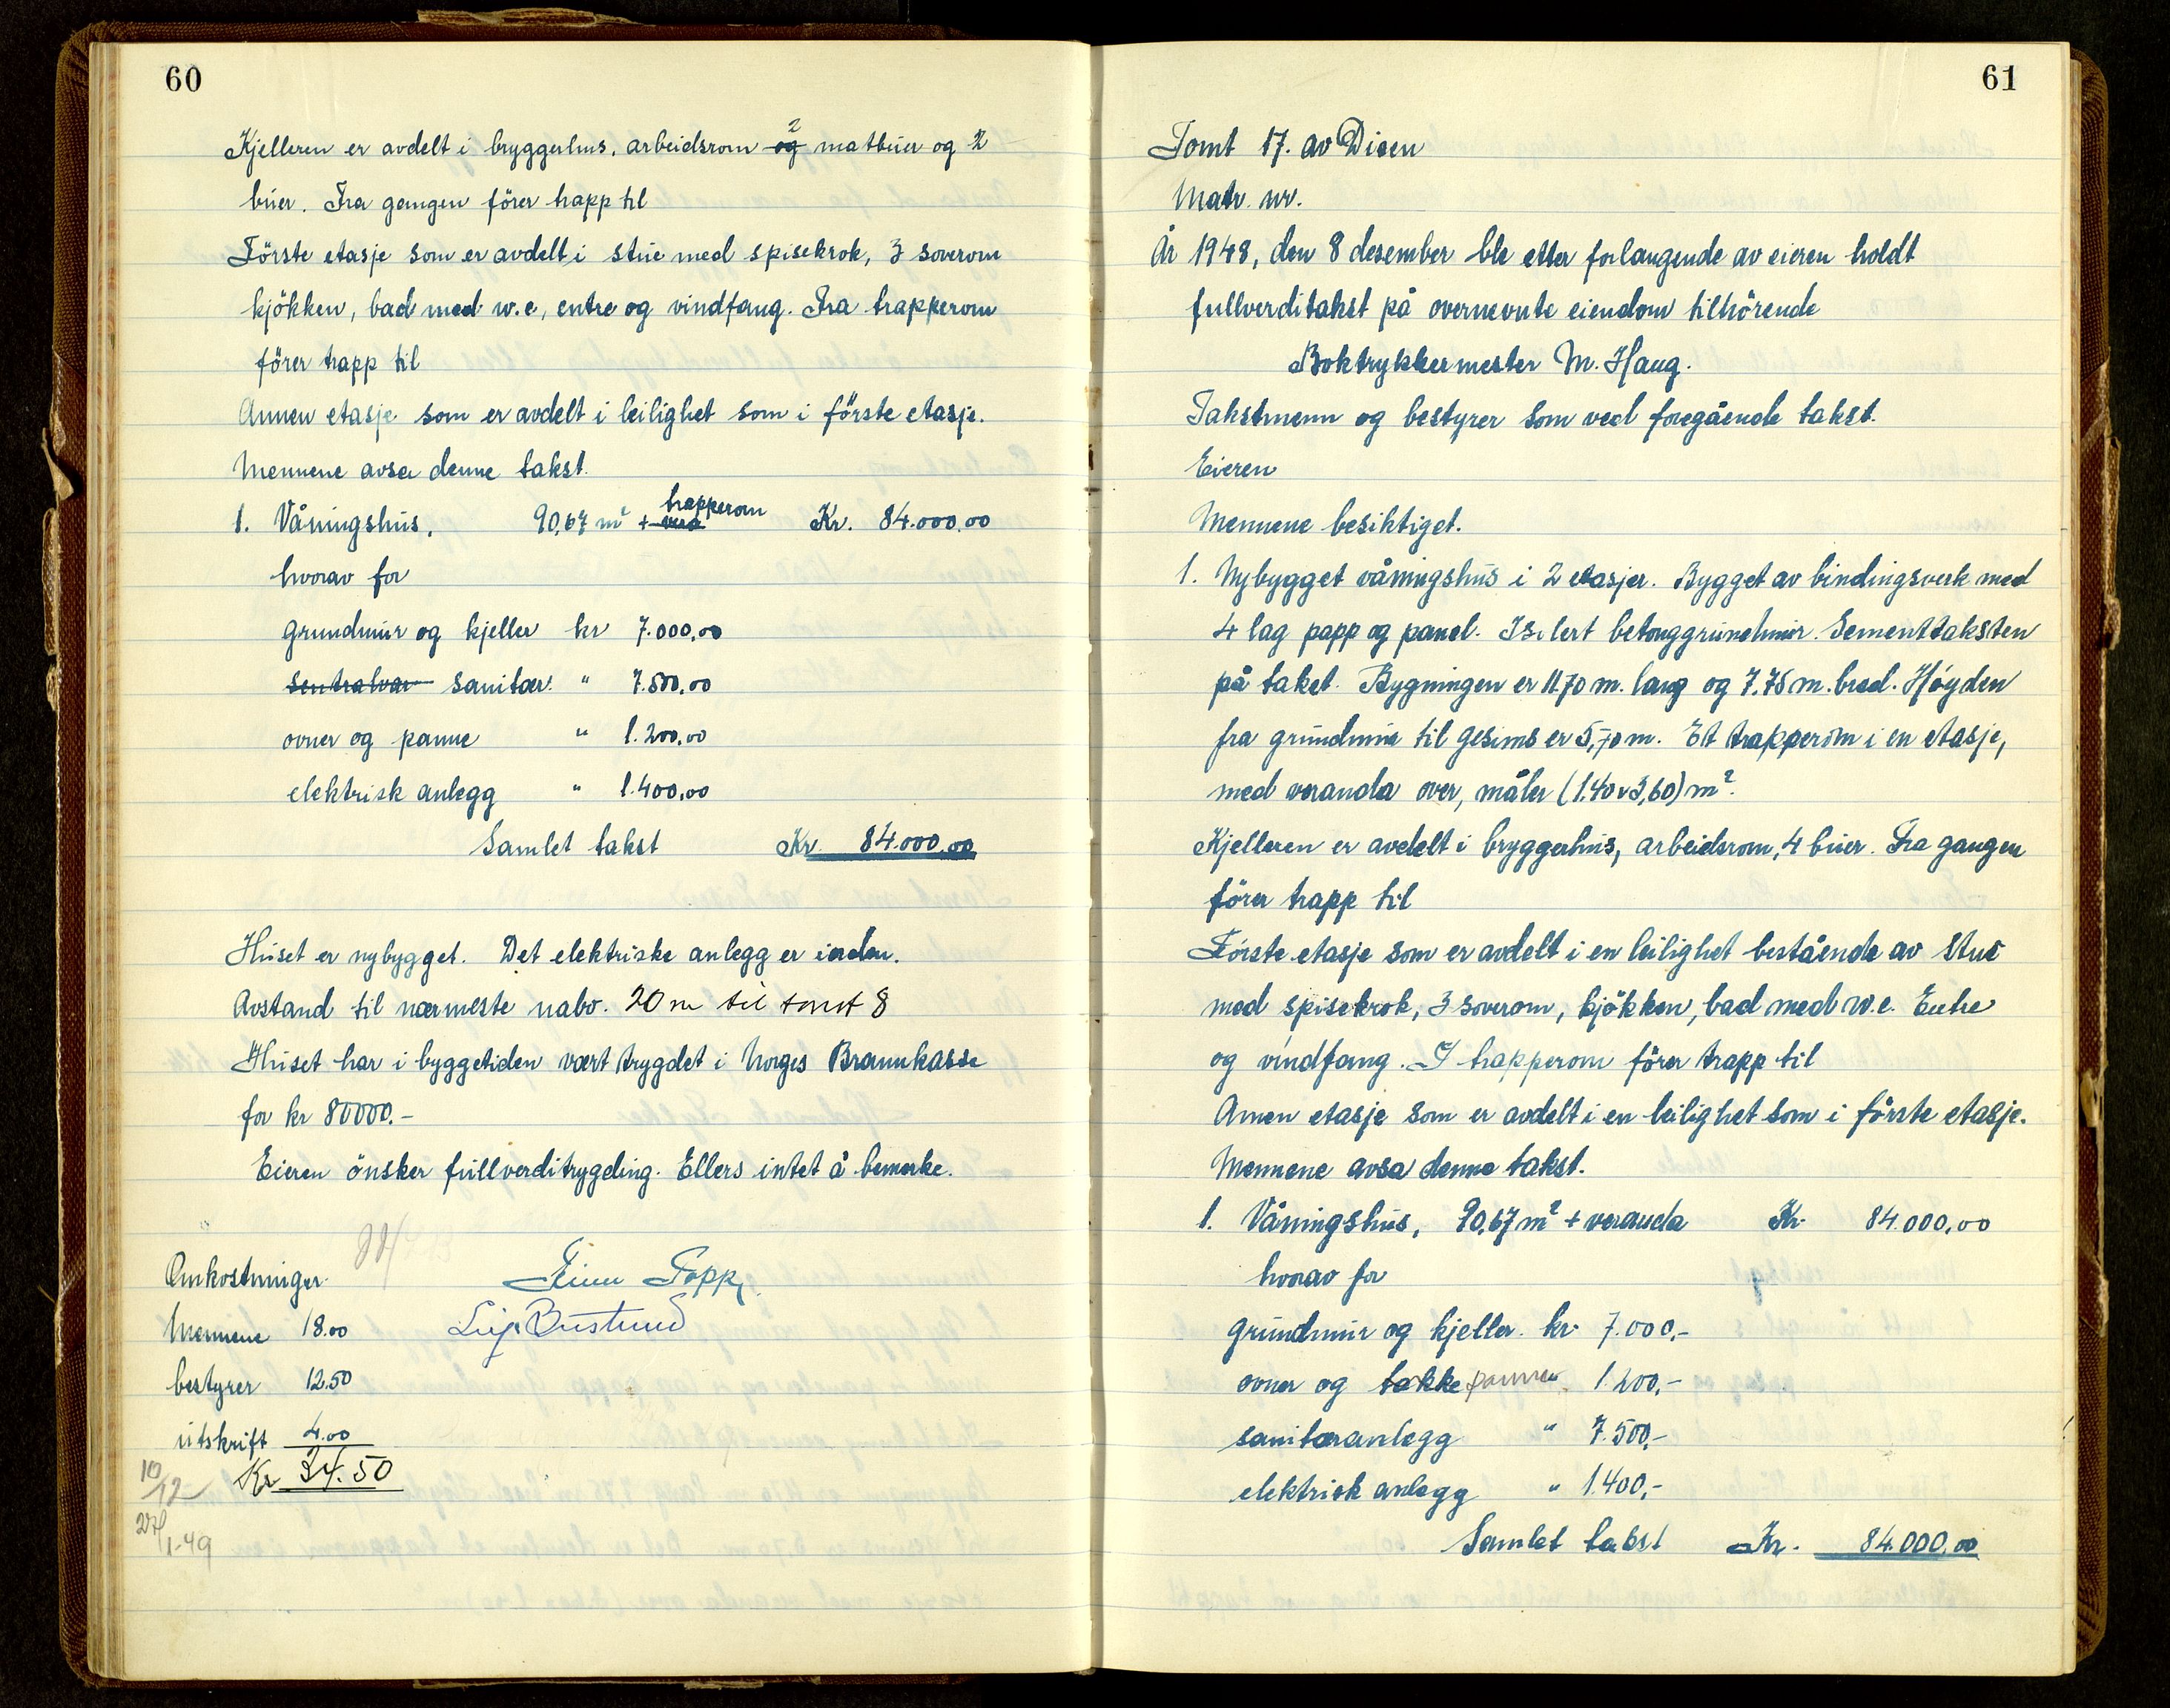 60
Kjelleren er avdelt i bryggerhus, arbeidsrom og 2 matbuer og 2
buer. Fra gangen fører trapp til
Første etasje som er avdelt i stue med spisekrok, 3 soverom
kjøkken, bad med w.c, entre og vindfang. Fra trapperom
fører trapp til
Annen etasje som er avdelt i leilighet som i første etasje.
Mennene avsa denne takst.
1. Våningshus, 90,67 m² + vera trapperom Kr. 84.000,00
hvorav for
grundmur og kjeller kr 7.000,00
sentralvar sanitær. " 7.500,00
ovner og panne " 1.200,00
elektrisk anlegg " 1.400,00
Samlet takst Kr. 84.000,00
Huset er nybygget. Det elektriske anlegg er i orden.
Avstand til nærmeste nabo. 20 m til tomt 8
Huset har i byggetiden vært trygdet i Norges Brannkasse
for kr 80000.-
Eieren ønsker fullverditrygding. Ellers intet å bemerke.
Omkostninger Finn Popp
Mennene 18.00
bestyrer 12.50
utskrift 4.00
Kr 34.50
10/12
27/1-49
61
Tomt 17. av Disen
Matr. nr.
År 1948, den 8 desember ble etter forlangende av eieren holdt
fullverditakst på overnevnte eiendom tilhørende
Boktrykkermester M. Haug.
Takstmenn og bestyrer som ved foregående takst.
Eieren
Mennene besiktiget.
1. Nybygget våningshus i 2 etasjer. Bygget av bindingsverk med
4 lag papp og panel. Isolert betonggrundmur. Sementtaksten
på taket. Bygningen er 11.70 m. lang og 7.75 m. bred. Høyden
fra grundmur til gesims er 5,70 m. Et trapperom i en etasje,
med veranda over, måler (1.40 x 3,60) m².
Kjelleren er avdelt i bryggerhus, arbeidsrom, 4 buer. Fra gangen
fører trapp til
Første etasje som er avdelt i en leilighet bestående av stue
med spisekrok, 3 soverom, kjøkken, bad med w.c. Entre
og vindfang. I trapperom fører trapp til
Annen etasje som er avdelt i en leilighet som i første etasje.
Mennene avsa denne takst.
1. Våningshus, 90,67 m² + veranda Kr. 84.000,00
hvorav for
grundmur og kjeller. kr. 7.000,-
ovner og takke panne " 1.200,-
sanitæranlegg " 7.500,-
elektrisk anlegg " 1.400,-
Samlet takst Kr. 84.000,00